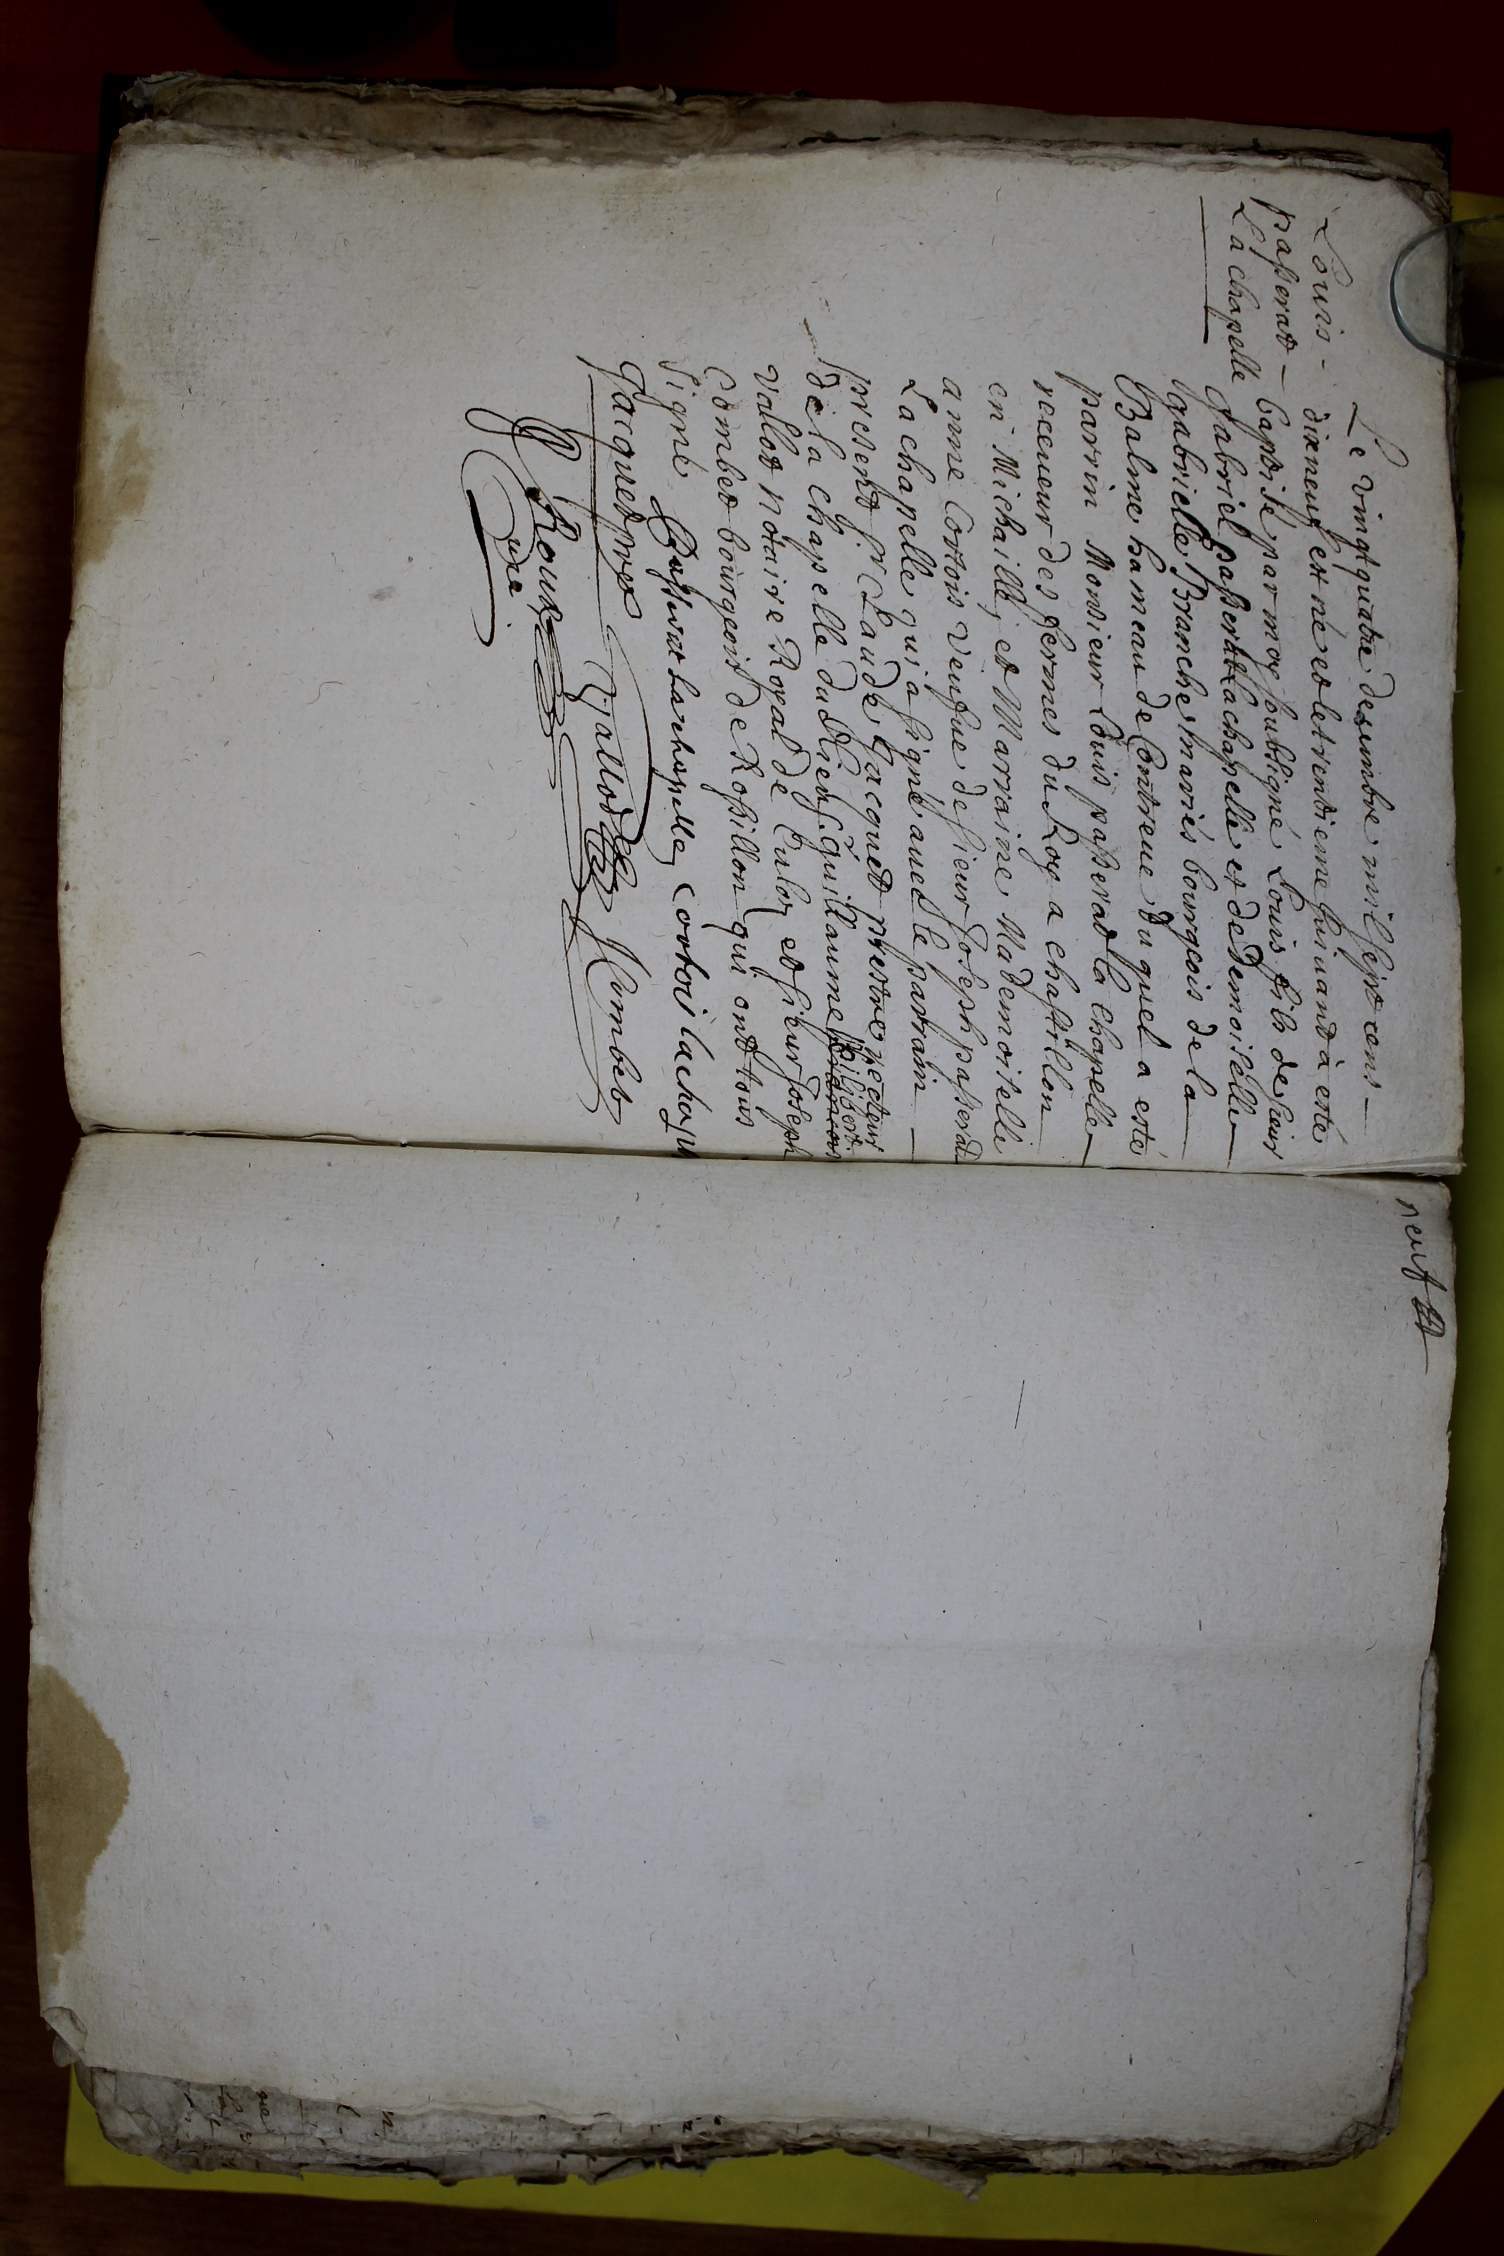 Louis -
passerat -
Lachapelle
Le vingt quatre desembre mil sept cens -
dixneuf est né et le trentieme suivant à esté
Baptisé par moy soubsigné Louis fils de sieur
Gabriel passerat Lachapelle et de Demoiselle -
gabrielle Branche mariés bourgeois de la -
Balme hameau de Contreue duquel a esté
parrin Monsieur Louis passerat la chapelle -
receueur des fermes du Roy a chastillon -
en Michaille, et Marraine Mademoiselle
anne Cortois veufue de sieur Joseph passerat
Lachapelle qui a signé auec le parrain -
present sr Claude Jacquet prestre recteur
de la chapelle dudt lieu sr guillaume philibert
vallod notaire Royal de Culoz et sieur Joseph
Combet bourgeois de Rossillon qui ont tous
signé Passerat Lachapelle Cortois lachap
Jacquet pre Vallod JCombet
Roux
curé
neuf